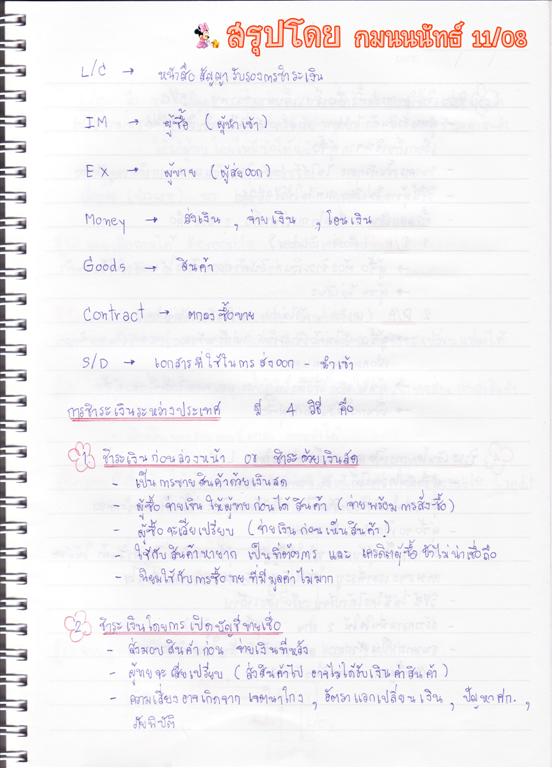 สรุปโดย กมนนนัทธ์ 11/08
L/C → หนังสือสัญญารับรองการชำระเงิน
IM → ผู้ซื้อ (ผู้นำเข้า)
EX → ผู้ขาย (ผู้ส่งออก)
Money → ส่งเงิน , จ่ายเงิน , โอนเงิน
Goods → สินค้า
Contract → ตกลงซื้อขาย
S/D → เอกสารที่ใช้ในการส่งออก - นำเข้า
การชำระเงินระหว่างประเทศ มี 4 วิธี คือ
1 ชำระเงินก่อนล่วงหน้า or ชำระด้วยเงินสด
- เป็นการขายสินค้าด้วยเงินสด
- ผู้ซื้อจ่ายเงินให้ผู้ขายก่อนได้สินค้า (จ่ายพร้อมการสั่งซื้อ)
- ผู้ซื้อจะเสียเปรียบ (จ่ายเงินก่อนเห็นสินค้า)
- ใช้กับสินค้าหายาก เป็นที่ต้องการ และ เครดิตผู้ซื้อยังไม่น่าเชื่อถือ
- นิยมใช้กับการซื้อขายที่มีมูลค่าไม่มาก
2 ชำระเงินโดยการเปิดบัญชีขายเชื่อ
- ส่งมอบสินค้าก่อน จ่ายเงินทีหลัง
- ผู้ขายจะเสียเปรียบ (ส่งสินค้าไป อาจไม่ได้รับเงินค่าสินค้า)
- ความเสี่ยงอาจเกิดจาก เจตนาโกง , อัตราแลกเปลี่ยนเงิน , ปัญหาศก. ,
ภัยพิบัติ